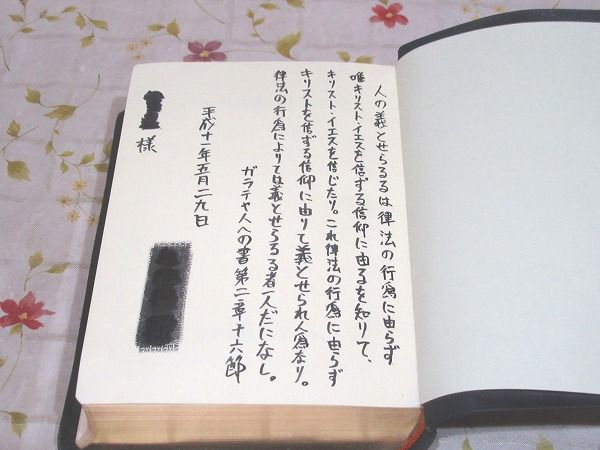 人の義とせらるるは律法の行爲に由らず
唯キリスト・イエスを信ずる信仰に由るを知りて、
キリスト・イエスを信じたり。これ律法の行爲に由らず
キリストを信ずる信仰に由りて義とせられん爲なり。
律法の行爲によりては義とせらるる者一人だになし。
ガラテヤ人への書第二章十六節
平成十一年五月二九日
様